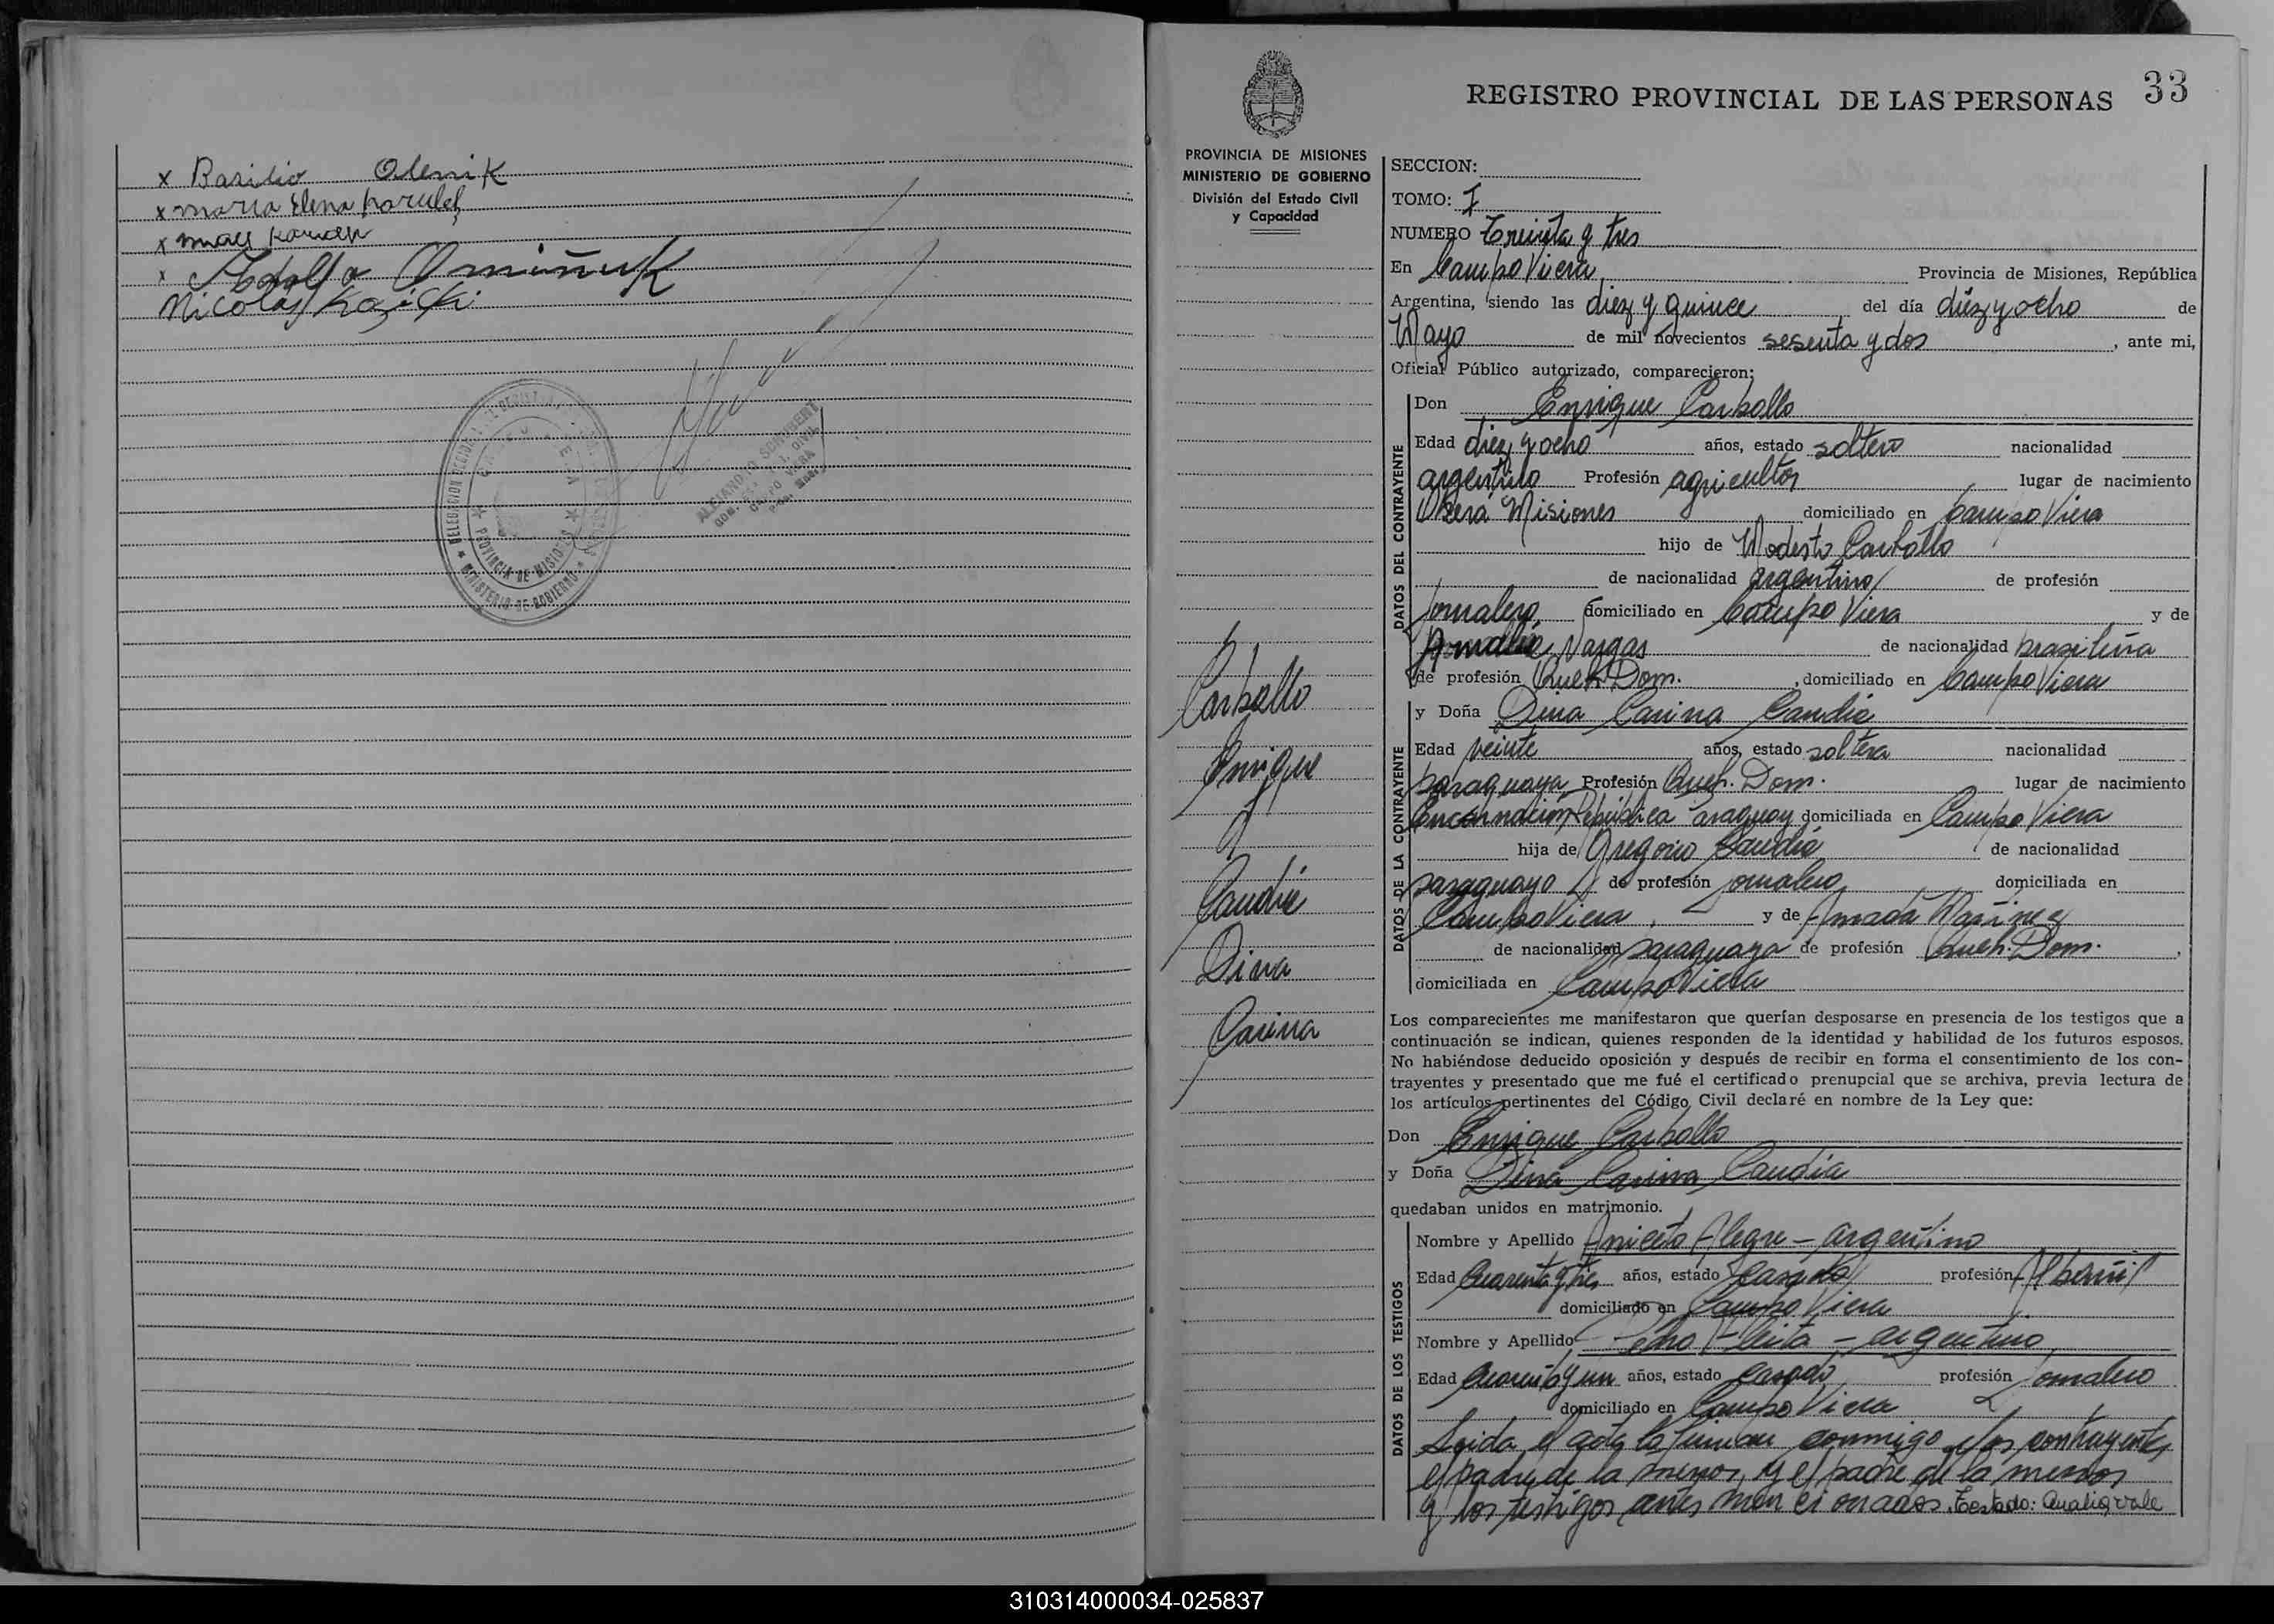 x Basilio Olenik
x maria Elena
x
x Adolfo
Nicolas
DELEGACION
PROVINCIA DE MISIONES
MINISTERIO DE GOBIERNO
ALEJANDRO SCHUBERT
CAMPO VIERA
33
REGISTRO PROVINCIAL DE LAS PERSONAS
PROVINCIA DE MISIONES
MINISTERIO DE GOBIERNO
División del Estado Civil
y Capacidad
Carballo
Enrique
y
Candia
Dina
Carina
SECCION:
TOMO: I
NUMERO Treinta y tres
En Campo Viera Provincia de Misiones, República
Argentina, siendo las diez y quince del día diez y ocho de
Mayo de mil novecientos sesenta y dos, ante mi,
Oficial Público autorizado, comparecieron:
DATOS DEL CONTRAYENTE
Don Enrique Carballo
Edad diez y ocho años, estado soltero nacionalidad
argentino Profesión agricultor lugar de nacimiento
Oberá Misiones domiciliado en Campo Viera
hijo de Modesto Carballo
de nacionalidad argentino de profesión
Jornalero, domiciliado en Campo Viera y de
Amalia Vargas de nacionalidad brasileña
de profesión Queh. Dom. , domiciliado en Campo Viera
DATOS DE LA CONTRAYENTE
y Doña Dina Carina Candia
Edad veinte años, estado soltera nacionalidad
paraguaya Profesión Queh. Dom. lugar de nacimiento
Encarnación República Paraguay domiciliada en Campo Viera
hija de Gregorio Candia de nacionalidad
paraguayo de profesión jornalero domiciliada en
Campo Viera, y de Amada Martínez
de nacionalidad paraguaya de profesión Queh. Dom. ,
domiciliada en Campo Viera
Los comparecientes me manifestaron que querían desposarse en presencia de los testigos que a
continuación se indican, quienes responden de la identidad y habilidad de los futuros esposos.
No habiéndose deducido oposición y después de recibir en forma el consentimiento de los con-
trayentes y presentado que me fué el certificado prenupcial que se archiva, previa lectura de
los artículos pertinentes del Código Civil declaré en nombre de la Ley que:
Don Enrique Carballo
y Doña Dina Carina Candia
quedaban unidos en matrimonio.
DATOS DE LOS TESTIGOS
Nombre y Apellido Aniceto Alegre - argentino
Edad Cuarenta y tres años, estado casado profesión Albañil
domiciliado en Campo Viera
Nombre y Apellido Pedro Fleita - argentino
Edad Cuarenta y un años, estado casado profesión Jornalero
domiciliado en Campo Viera
Leida el acta la firman conmigo los contrayentes,
el padre de la menor, y el padre de la menor
y los testigos antes mencionados. Testado: vale
310314000034-025837